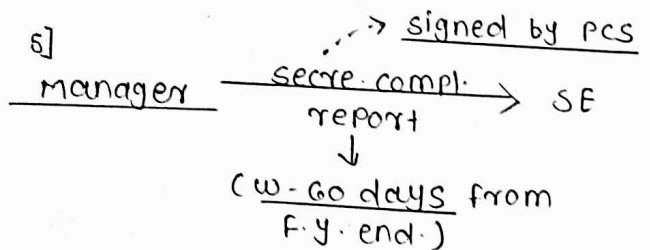 signed by PCS
5]
manager secre. compl. SE
report
(w - 60 days from
F. y. end.)